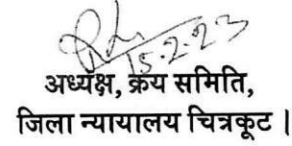 15-2-23
अध्यक्ष, क्रय समिति,
जिला न्यायालय चित्रकूट |